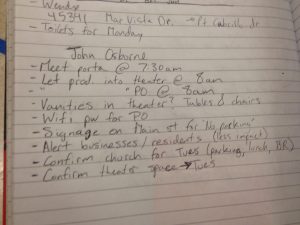 - Wendy
45341 Mar Vista Dr. → Pt Cabrillo Dr
- Toilets for Monday
John Osborne
- Meet porta @ 7:30am
- Let prod into theater @ 8am
- " " PO @ 8am
- Vanities in theater? Tables & chairs
- Wifi pw for PO
- Signage on Main st for "No parking"
- Alert businesses/residents (less impact)
- Confirm church for Tues (parking, lunch, BR)
- Confirm theater space → Tues